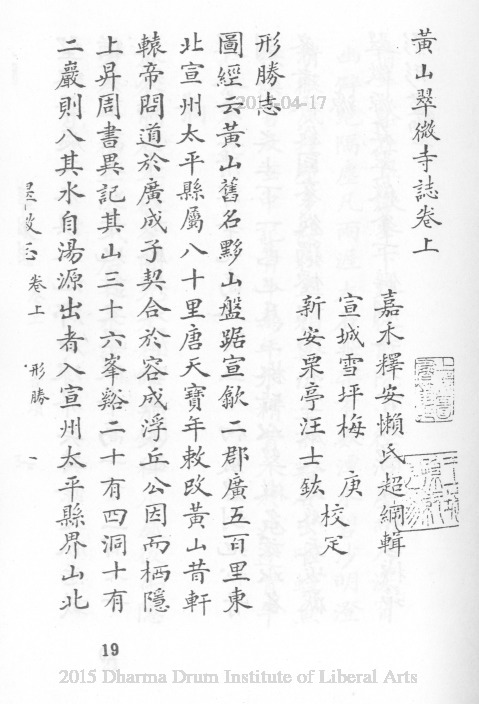 黃山翠微寺誌卷上
嘉禾釋安懶氏超綱輯
宣城雪坪梅庚
新安栗亭汪士鈜
校定
形勝志
圖經云黃山舊名黟山盤踞宣歙二郡廣五百里東
北宣州太平縣屬八十里唐天寶年敕改黃山昔軒
轅帝問道於廣成子契合於容成浮丘公因而栖隱
上昇周書異記其山三十六峯谿二十有四洞十有
二巖則八其水自湯源出者入宣州太平縣界山北
卷上 形勝 一
2015-04-17
19
2015 Dharma Drum Institute of Liberal Arts